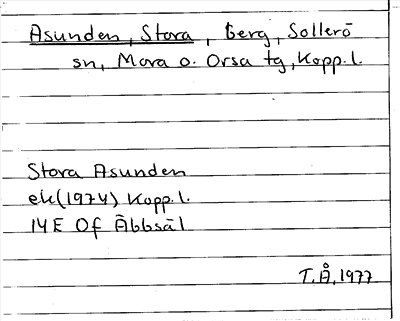 Asunden, Stora, berg, Sollerö
sn, Mora o. Orsa tg, Kopp.l.
Stora Asunden
ek(1974) Kopp.l.
14E 0f Äbbsäl
T.Å. 1977